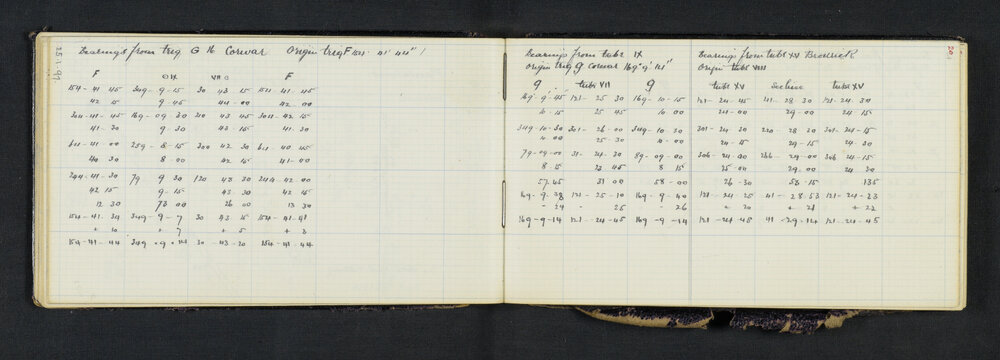 25.1.97
Bearings from trig G to Corwar Origin trig F 154° 41' 44"
F ⊙ IX VII ⊙ F
154-41-45 349-9-15 30 43 15 154-41-45
42 15 9 45 44-00 42 00
41-30 9 30 43 15 41-30
64-41 00 259-8-15 300 42 30 64 40 45
40 30 8 00 42 15 41-00
244-41-30 79 9 30 120 43 30 244-42-00
42 15 9-15 43-30 42 15
12 30 73 00 26 00 13 30
154-41-34 349-9-7 30 43 15 154-41-41
+ 10 + 7 + 5 + 3
154-41-44 349-9-14 30-43-20 154-41-44
20
Bearings from tube IX
Origin trig g Corwar 169° 9' 14"
g tube VII g
169-9-45 121-25 30 169-10-15
10-15 25 45 10 00
349-10-30 301-26-00 349-10 30
10 00 25 30 10-00
79-09-00 31-24-30 89-09-00
8-15 23 45 8 15
57.45 31 00 58-00
169-9-38 121-25-10 169-9-40
-24 25 -26
169-9-14 121-24-45 169-9-14
Bearings from tube XV Broderick
Origin tube VIII
tube XV Seeline tube XV
121-24-45 41-28 30 121-24-30
24-00 29-00 24-15
301-24-30 220 28 30 301-24-15
24-15 29-15 24-30
25-00 29.00 24 30
26-30 53-15 135
121-24-25 41-28-53 121-24-23
+ 20 + 21 + 22
121-24-45 41-29-14 121-24-45